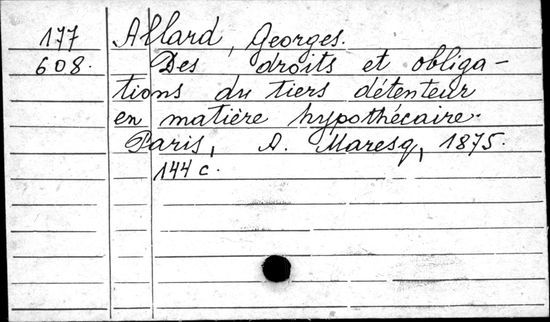 177 Allard, Georges.
608. Des droits et obliga-
tions du tiers détenteur
en matière hypothécaire.
Paris, A. Maresq, 1875.
144 c.